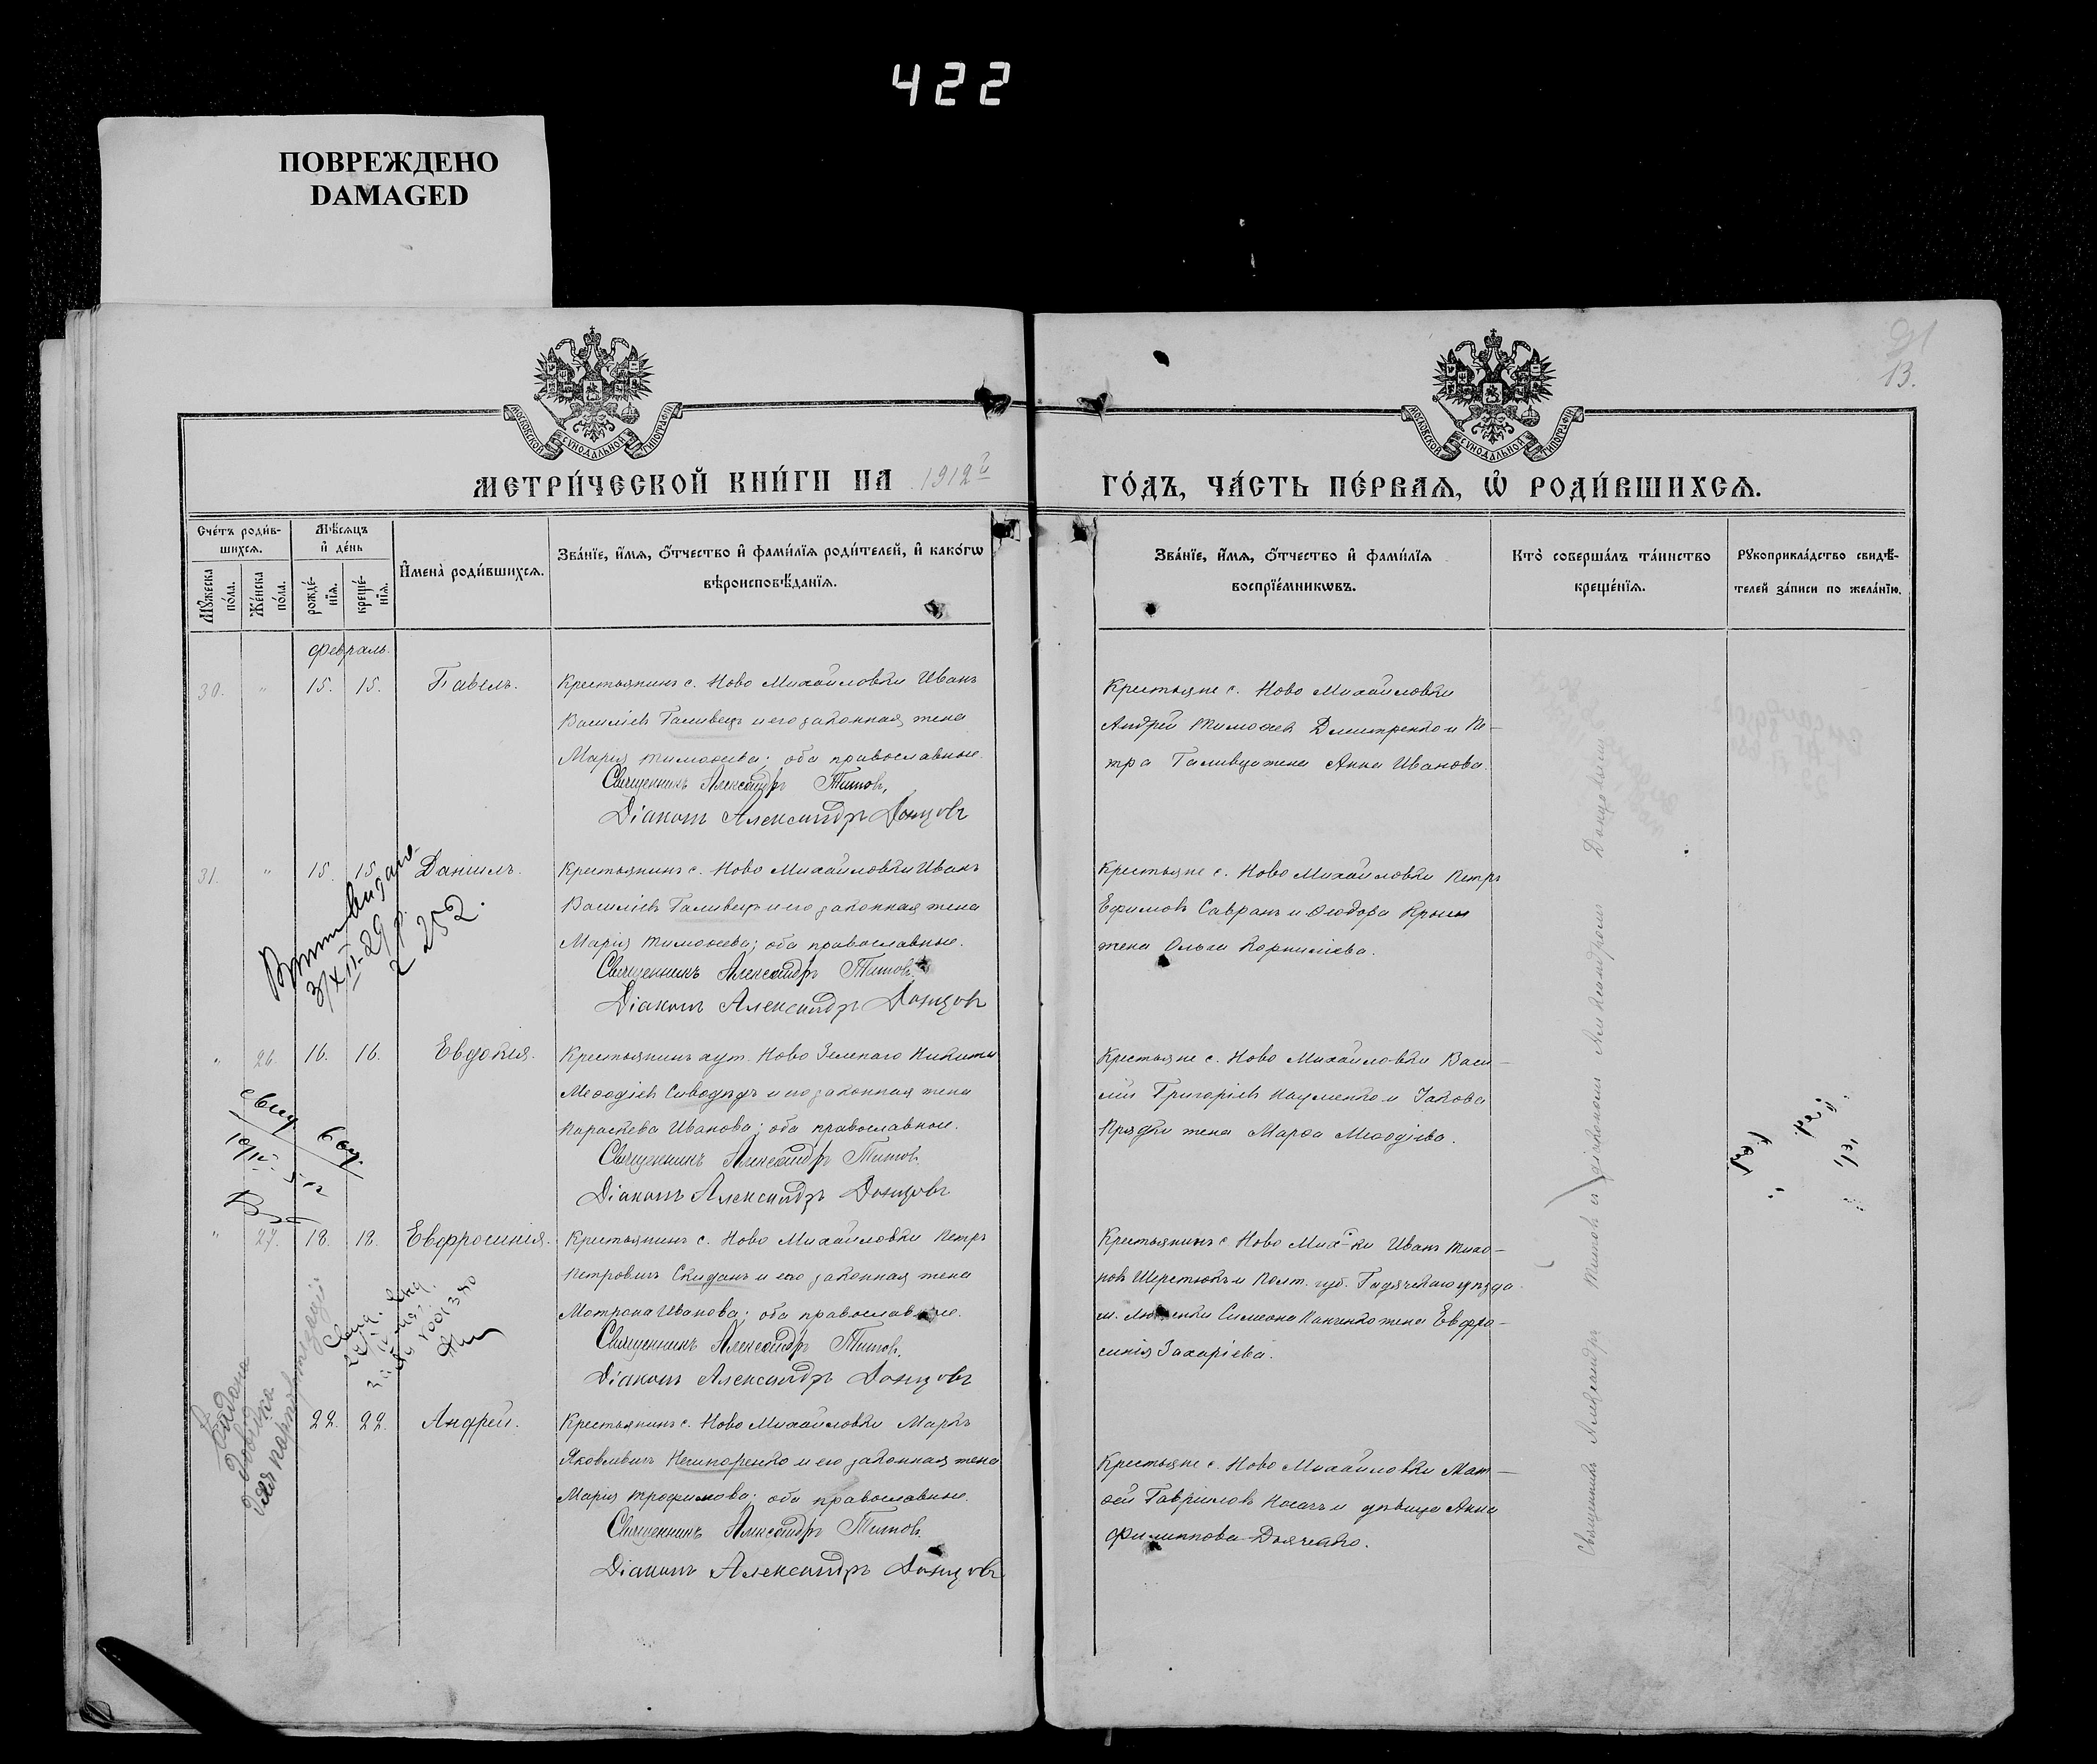 422
ПОВРЕЖДЕНО
DAMAGED
13.
МОСКОВСКОЙ СѴНОДАЛЬНОЙ ТИПОГРАФІИ
МОСКОВСКОЙ СѴНОДАЛЬНОЙ ТИПОГРАФІИ
МЕТРИ́ЧЕСКОЙ КНИ́ГИ НА 1912й
ГО́ДЪ, ЧА́СТЬ ПЕ́РВАѦ, Ѡ҆ РОДИ́ВШИХСѦ.
Сче́тъ роди́в-
шихсѧ.
Мꙋ́жеска по́ла.
Же́нска по́ла.
Мѣ́сѧцъ
и҆ де́нь
рожде́-
нїѧ.
креще́-
нїѧ.
И҆мена̀ роди́вшихсѧ.
Зва́нїе, и҆́мѧ, ѻ҆́тчество и҆ фами́лїѧ роди́телей, и҆ како́гѡ
вѣроисповѣ́данїѧ.
Зва́нїе, и҆́мѧ, ѻ҆́тчество и҆ фами́лїѧ
воспрїе́мникѡвъ.
Кто̀ соверша́лъ та́инство
креще́нїѧ.
Рꙋкоприкла́дство свидѣ́-
телей за́писи по жела́нїю.
Февраль.
30. " 15. 15. Павелъ.
Крестьянинъ с. Ново Михайловки Иванъ
Василіевъ Галивецъ и его законная жена
Марія Тимоѳеева; оба православные.
Священникъ Александръ Титовъ.
Діаконъ Александръ Донцовъ
Крестьяне с. Ново Михайловки
Андрей Тимоѳеевъ Дмитренко и Пе-
тра Галивца жена Анна Иванова.
31. " 15. 15. Даніилъ.
Крестьянинъ с. Ново Михайловки Иванъ
Василіевъ Галивецъ и его законная жена
Марія Тимоѳеева; оба православные.
Священникъ Александръ Титовъ.
Діаконъ Александръ Донцовъ
Крестьяне с. Ново Михайловки Петръ
Ефимовъ Савранъ и Ѳеодора
жена Ольга Корниліева.
252.
" 26. 16. 16. Евдокія.
Крестьянинъ хут. Ново Зеленаго Никита
Меѳодіевъ Сиводѣдъ и его законная жена
Параскева Иванова; оба православные.
Священникъ Александръ Титовъ.
Діаконъ Александръ Донцовъ
Крестьяне с. Ново Михайловки Васи-
лій Григоріевъ Науменко и Іакова
Прядки жена Марѳа Меѳодіева.
" 27. 18. 18. Евфросинія.
Крестьянинъ с. Ново Михайловки Петръ
Петровичъ Скиданъ и его законная жена
Матрона Иванова; оба православные.
Священникъ Александръ Титовъ.
Діаконъ Александръ Донцовъ
Крестьянинъ с. Ново Мих-ки Иванъ Тихо-
новъ Шерстюкъ и Полт. губ. Гадячскаго уѣзда
м. Лютеньки Симеона Панченко жена Евфро-
синія Захаріева.
22. 22. Андрей.
Крестьянинъ с. Ново Михайловки Маркъ
Яковлевичъ Нечипоренко и его законная жена
Марія Трофимова; оба православные.
Священникъ Александръ Титовъ.
Діаконъ Александръ Донцовъ
Крестьяне с. Ново Михайловки Мат-
ѳей Гавриловъ Носачъ и дѣвица Анна
Филиппова Дьяченко.
Священникъ Александръ Титовъ и діаконъ Александръ Донцовъ